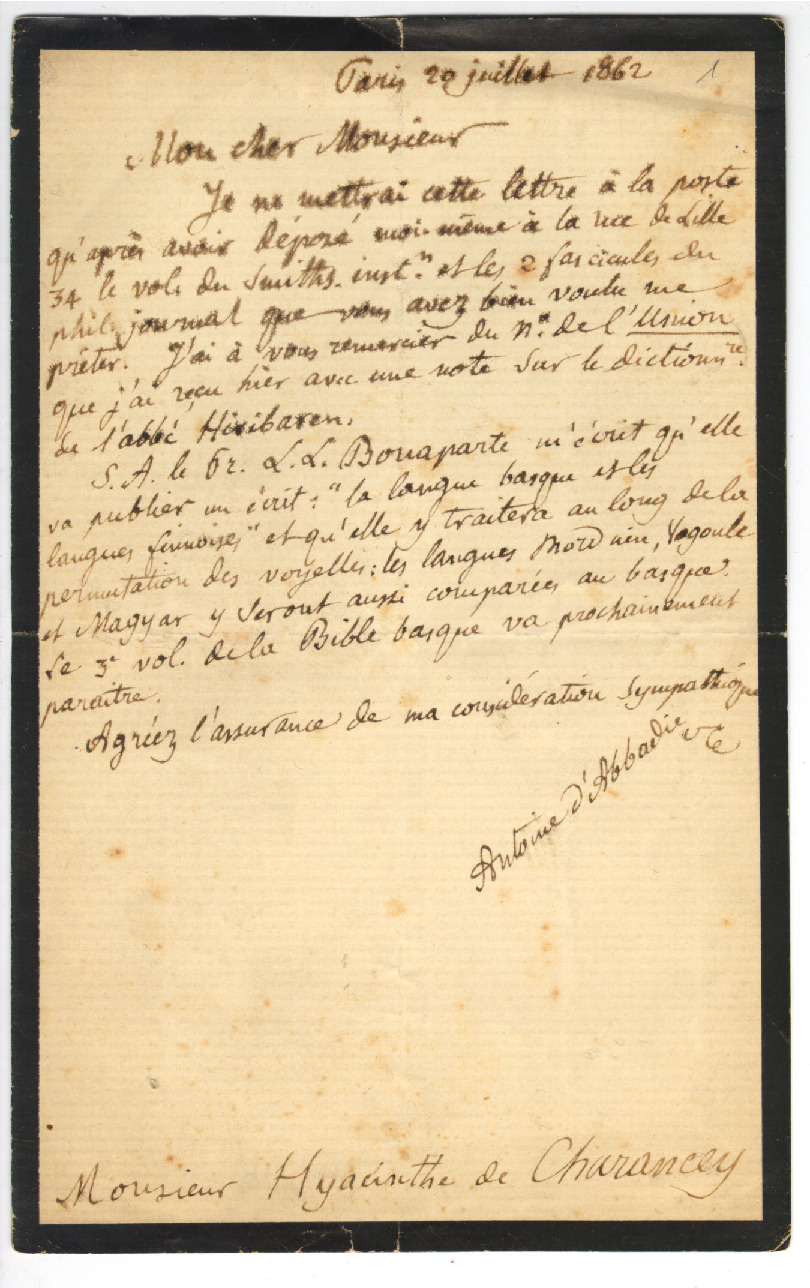 Paris 29 juillet 1862
1
Mon cher Monsieur
Je ne mettrai cette lettre à la poste
qu'après avoir déposé moi-même à la rue de Lille
34 le vol. du Smiths. inst.n et les 2 fascicules du
phil. journal que vous avez bien voulu me
prêter. J'ai à vous remercier du n.o de l'Union
que j'ai reçu hier avec une note sur le dictionnre.
de l'abbé Hiribaren.
S. A. le Pr. L. L. Bonaparte m'écrit qu'elle
va publier un écrit: "la langue basque et les
langues finnoises" et qu'elle y traitera au long de la
permutation des voyelles: les langues Mordvien, Vogoule
et Magyar y seront aussi comparées au basque.
Le 3e vol. de la Bible basque va prochainement
paraître.
Agréez l'assurance de ma considération sympathique
Antoine d'Abbadie
Monsieur Hyacinthe de Charancey